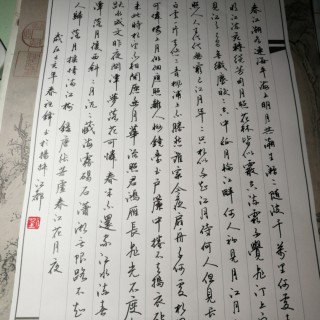 春江潮水连海平海上明月共潮生滟滟随波千万里何处春
江无月明江流宛转绕芳甸月照花林皆似霰空里流霜不觉飞汀上
白沙看不见江天一色无纤尘皎皎空中孤月轮江畔何人初见月江月何年初
照人人生代代无穷已江月年年只相似不知江月待何人但见长江送流水
白云一片去悠悠青枫浦上不胜愁谁家今夜扁舟子何处相思明月楼
可怜楼上月徘徊应照离人妆镜台玉户帘中卷不去捣衣砧上拂还
来此时相望不相闻愿逐月华流照君鸿雁长飞光不度鱼龙潜
跃水成文昨夜闲潭梦落花可怜春半不还家江水流春去欲尽江
潭落月复西斜斜月沉沉藏海雾碣石潇湘无限路不知乘月几
人归落月摇情满江树 录唐张若虚春江花月夜
年春 书于 江都